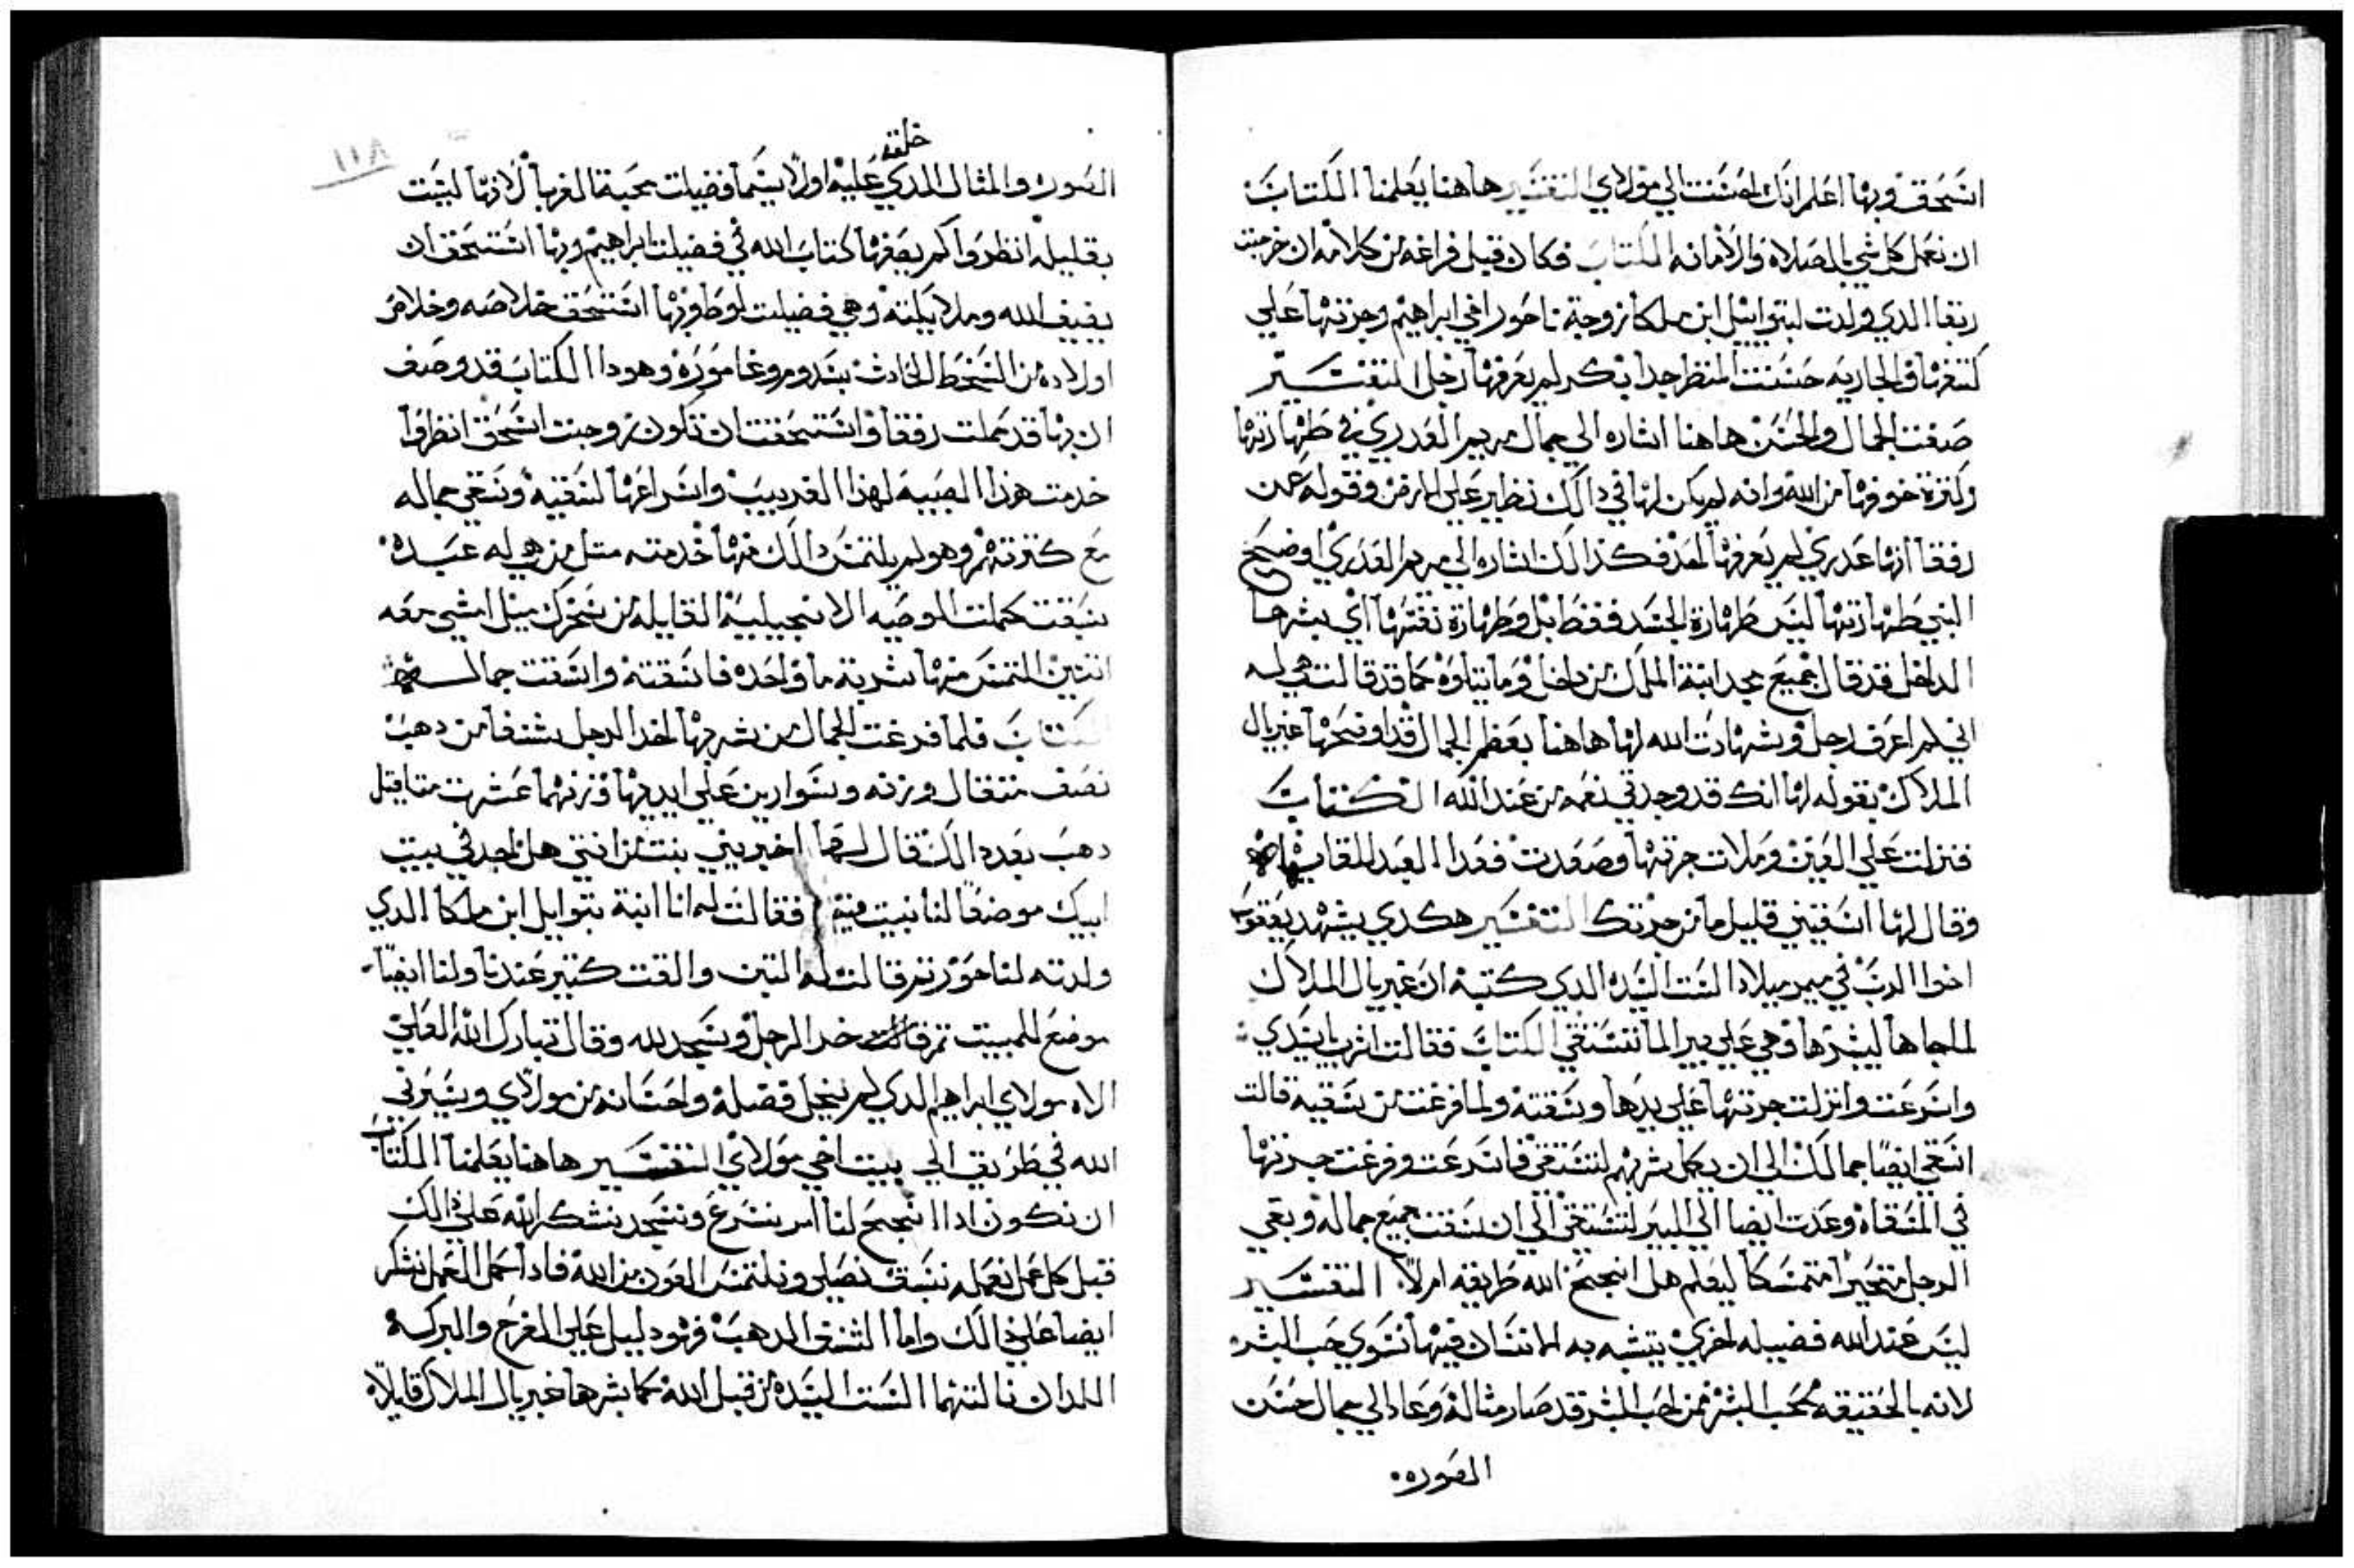 اسحق وبها اعلم انك احسنت الي مولاي التفسير هاهنا يعلمنا الكتاب
ان نعمل كل شي بالصلاه والامانه الكتاب فكان قبل فراغه من كلامه ان خرجت
ربقا الدي ولدت لبتوايل ابن ملكا زوجة ناحور اخي ابراهيم وجرتها علي
كتفها والجاريه حسنت المنظر جدا بكر لم يعرفها رجل التفسير
صفت الجمال والحسن هاهنا اشاره الي جمال مريم العدري في طهارتها
وكترة خوفها من الله وانه لم يكن لها في دالك نظير علي الارض وقوله عن
رفقا انها عدري لم يعرفها احد فكذالك اشاره الي مريم العدري اوضح
النبي طهارتها ليس طهارة الجسد فقط بل وطهارة نفسها اي بشرها
الداخل قد قال جميع مجد ابنة الملك من داخل وما يتلوه كما قد قالت هي له
اني لم اعرف رجل وشهادت الله لها هاهنا بعظم الجمال قد اوضحها غبريال
الملاك بقوله لها انك قد وجدتي نعمه من عند الله الكتاب
فنزلت علي العين وملات جرتها وصعدت فغدا العبد للقايها
وقال لها اسقيني قليل ما من جرتك التفسير هكدي يشهد يعقوب
اخوا الرب في ميمر ميلاد الست السيده الدي كتبه ان غبريال الملاك
لما جاها ليبشرها وهي علي بير الما تستقي الكتاب فقالت اشرب ياسيدي
واسرعت وانزلت جرتها علي يدها وسقته ولما فرغت من سقيه قالت
اسقي ايضا جمالك الي ان يكمل شربهم لتستقي فاسرعت وفرغت جرتها
في المسقاه وعدت ايضا الي البير لتستقي الي ان سقت جميع جماله وبقي
الرجل متحيرا متمسكا ليعلم هل انجح الله طريقه ام لا التفسير
ليس عند الله فضيله اخري يتشبه به الانسان فيها سوي حب البشر
لانه بالحقيقه محب البشر فمن احب البشر قد صار مثاله وعاد الي جمال حسن
الصوره
١١٨
خلقه
الصوره والمثال الدي عليه اولا سيما فضيلت محبة الغربا لانها ليست
بقليله انظروا كم يصفها كتاب الله في فضيلت ابراهيم وبها استحق ان
يضيف الله وملايكته وهي فضيلت لوط وبها استحق خلاصه وخلاص
اولاده من السخط الحادث بسدوم وغاموره وهودا الكتاب قد وصف
ان بها قد كملت رفقا واستحقت ان تكون زوجت اسحق انظروا
خدمت هذا الصبيه لهذا الغريب واسراعها لسقيه وسقي جماله
مع كترتهم وهو لم يلتمس دالك منها خدمته متل من هي له عبده
سبقت كملت الوصيه الانجيليه القايله من سخرك ميل امشي معه
اتنين التمس منها شربة ما واحده فاسقته واسقت جماله
الكتاب فلما فرغت الجمال من شربها اخد الرجل شنفا من دهب
نصف متقال وزنه وسوارين علي ايديها وزنهما عشرت متاقيل
دهب بعد دالك قال لها اخبريني بنت من انتي هل نجد في بيت
ابيك موضعا لنا نبيت فيه فقالت له انا ابنة بتوايل ابن ملكا الدي
ولدته لناحور تم قالت له التبن والقت كتير عندنا ولنا ايضا
موضع للمبيت تم قالت خر الرجل وسجد لله وقال تبارك الله العلي
الاه مولاي ابراهيم الدي لم يبخل فضله واحسانه من مولاي وسيرني
الله في طريق الي بيت اخي مولاي التفسير هاهنا يعلمنا الكتاب
ان نكون ادا انجح لنا امر نسرع ونسجد نشكر الله علي دالك
قبل كل عمل نعمله نسبق نصلي ونلتمس العون من الله فادا كمل العمل نشكر
ايضا علي دالك واما الشنف الدهب فهو دليل علي الفرح والبركه
اللدان نالتهما الست السيده من قبل الله كما بشرها غبريال الملاك قايلا